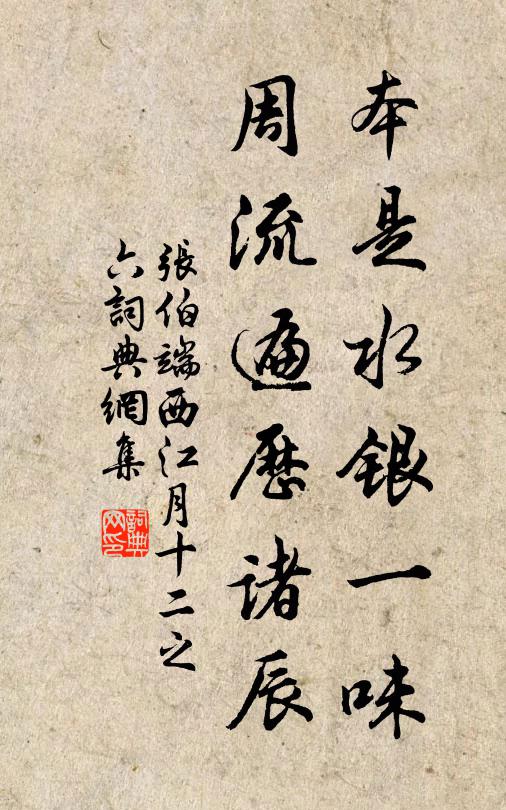 本是水銀一味
周流遍歷諸辰
張伯端西江月十二之
六詞典網集
詞典
网印